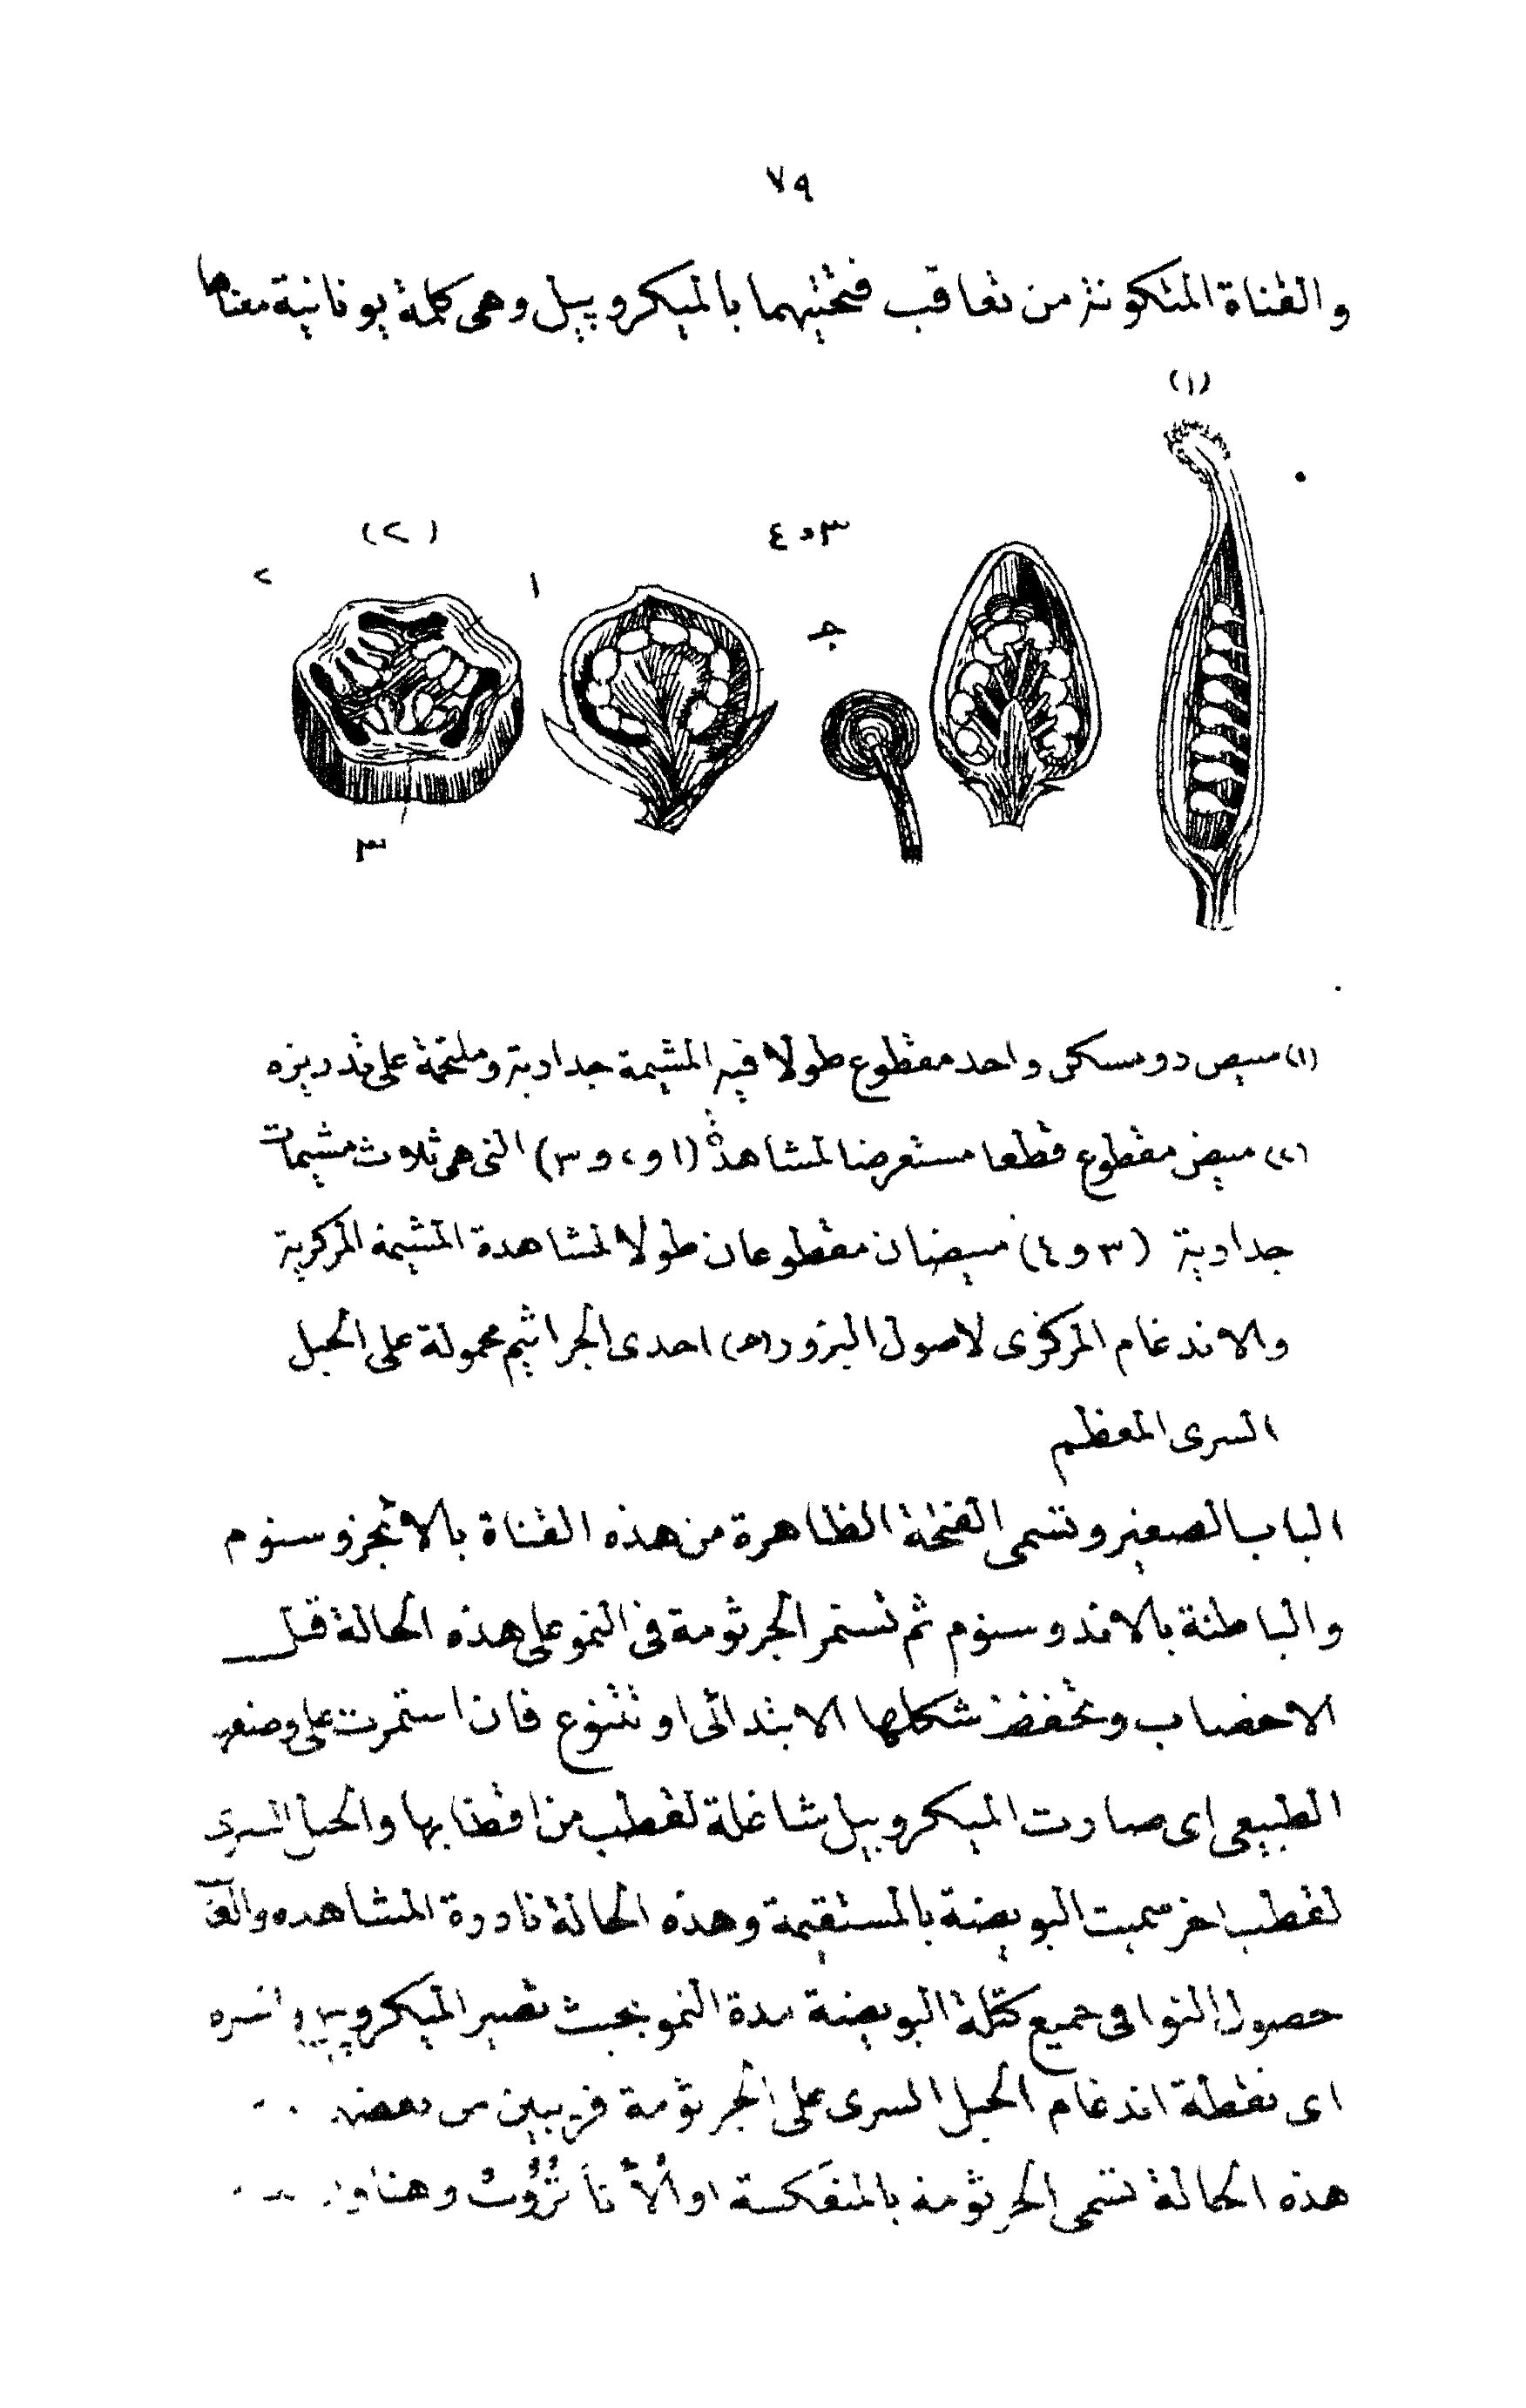 ٧٩
والقناة المتكونة من تعاقب فتحتيهما بالميكروپيل وهى كلمة يونانية معناها
(١)
(٢)
٣و٤
٢
١
جـ
٣
(١) مبيض دو مسكن واحد مقطوع طولا فيه المشيمة جدارية وملتحمة على تدريزه
(٢) مبيض مقطوع قطعا مستعرضا لمشاهدة (١ و٢ و٣) التى هى ثلاث مشيمات
جدارية (٣ و٤) مبيضان مقطوعان طولا لمشاهدة المشيمة المركزية
والاندغام المركزى لاصول البزور (هـ) احدى الجراثيم محمولة على الحبل
السرى المعظم
الباب الصغير وتسمى الفتحة الظاهرة من هذه القناة بالاجزوستوم
والباطنة بالاندوستوم ثم تستمر الجرثومة فى النمو على هذه الحالة قبل
الاخصاب وتحفظ شكلها الابتدائى او تتنوع فان استمرت على وضعها
الطبيعى اى صارت الميكروبيل شاغلة لقطب من اقطابها والحبل السرى
لقطب اخر سميت البويضة بالمستقيمة وهذه الحالة نادرة المشاهده والغالب
حصول النوا فى جميع كتلة البويضة مدة النمو بحيث تصير الميكروپيل والسره
اى نقطة اندغام الحبل السرى على الجرثومة قريبين من بعضهما
هذه الحالة تسمى الجرثومة بالمنعكسة او الأناتروب وهناك